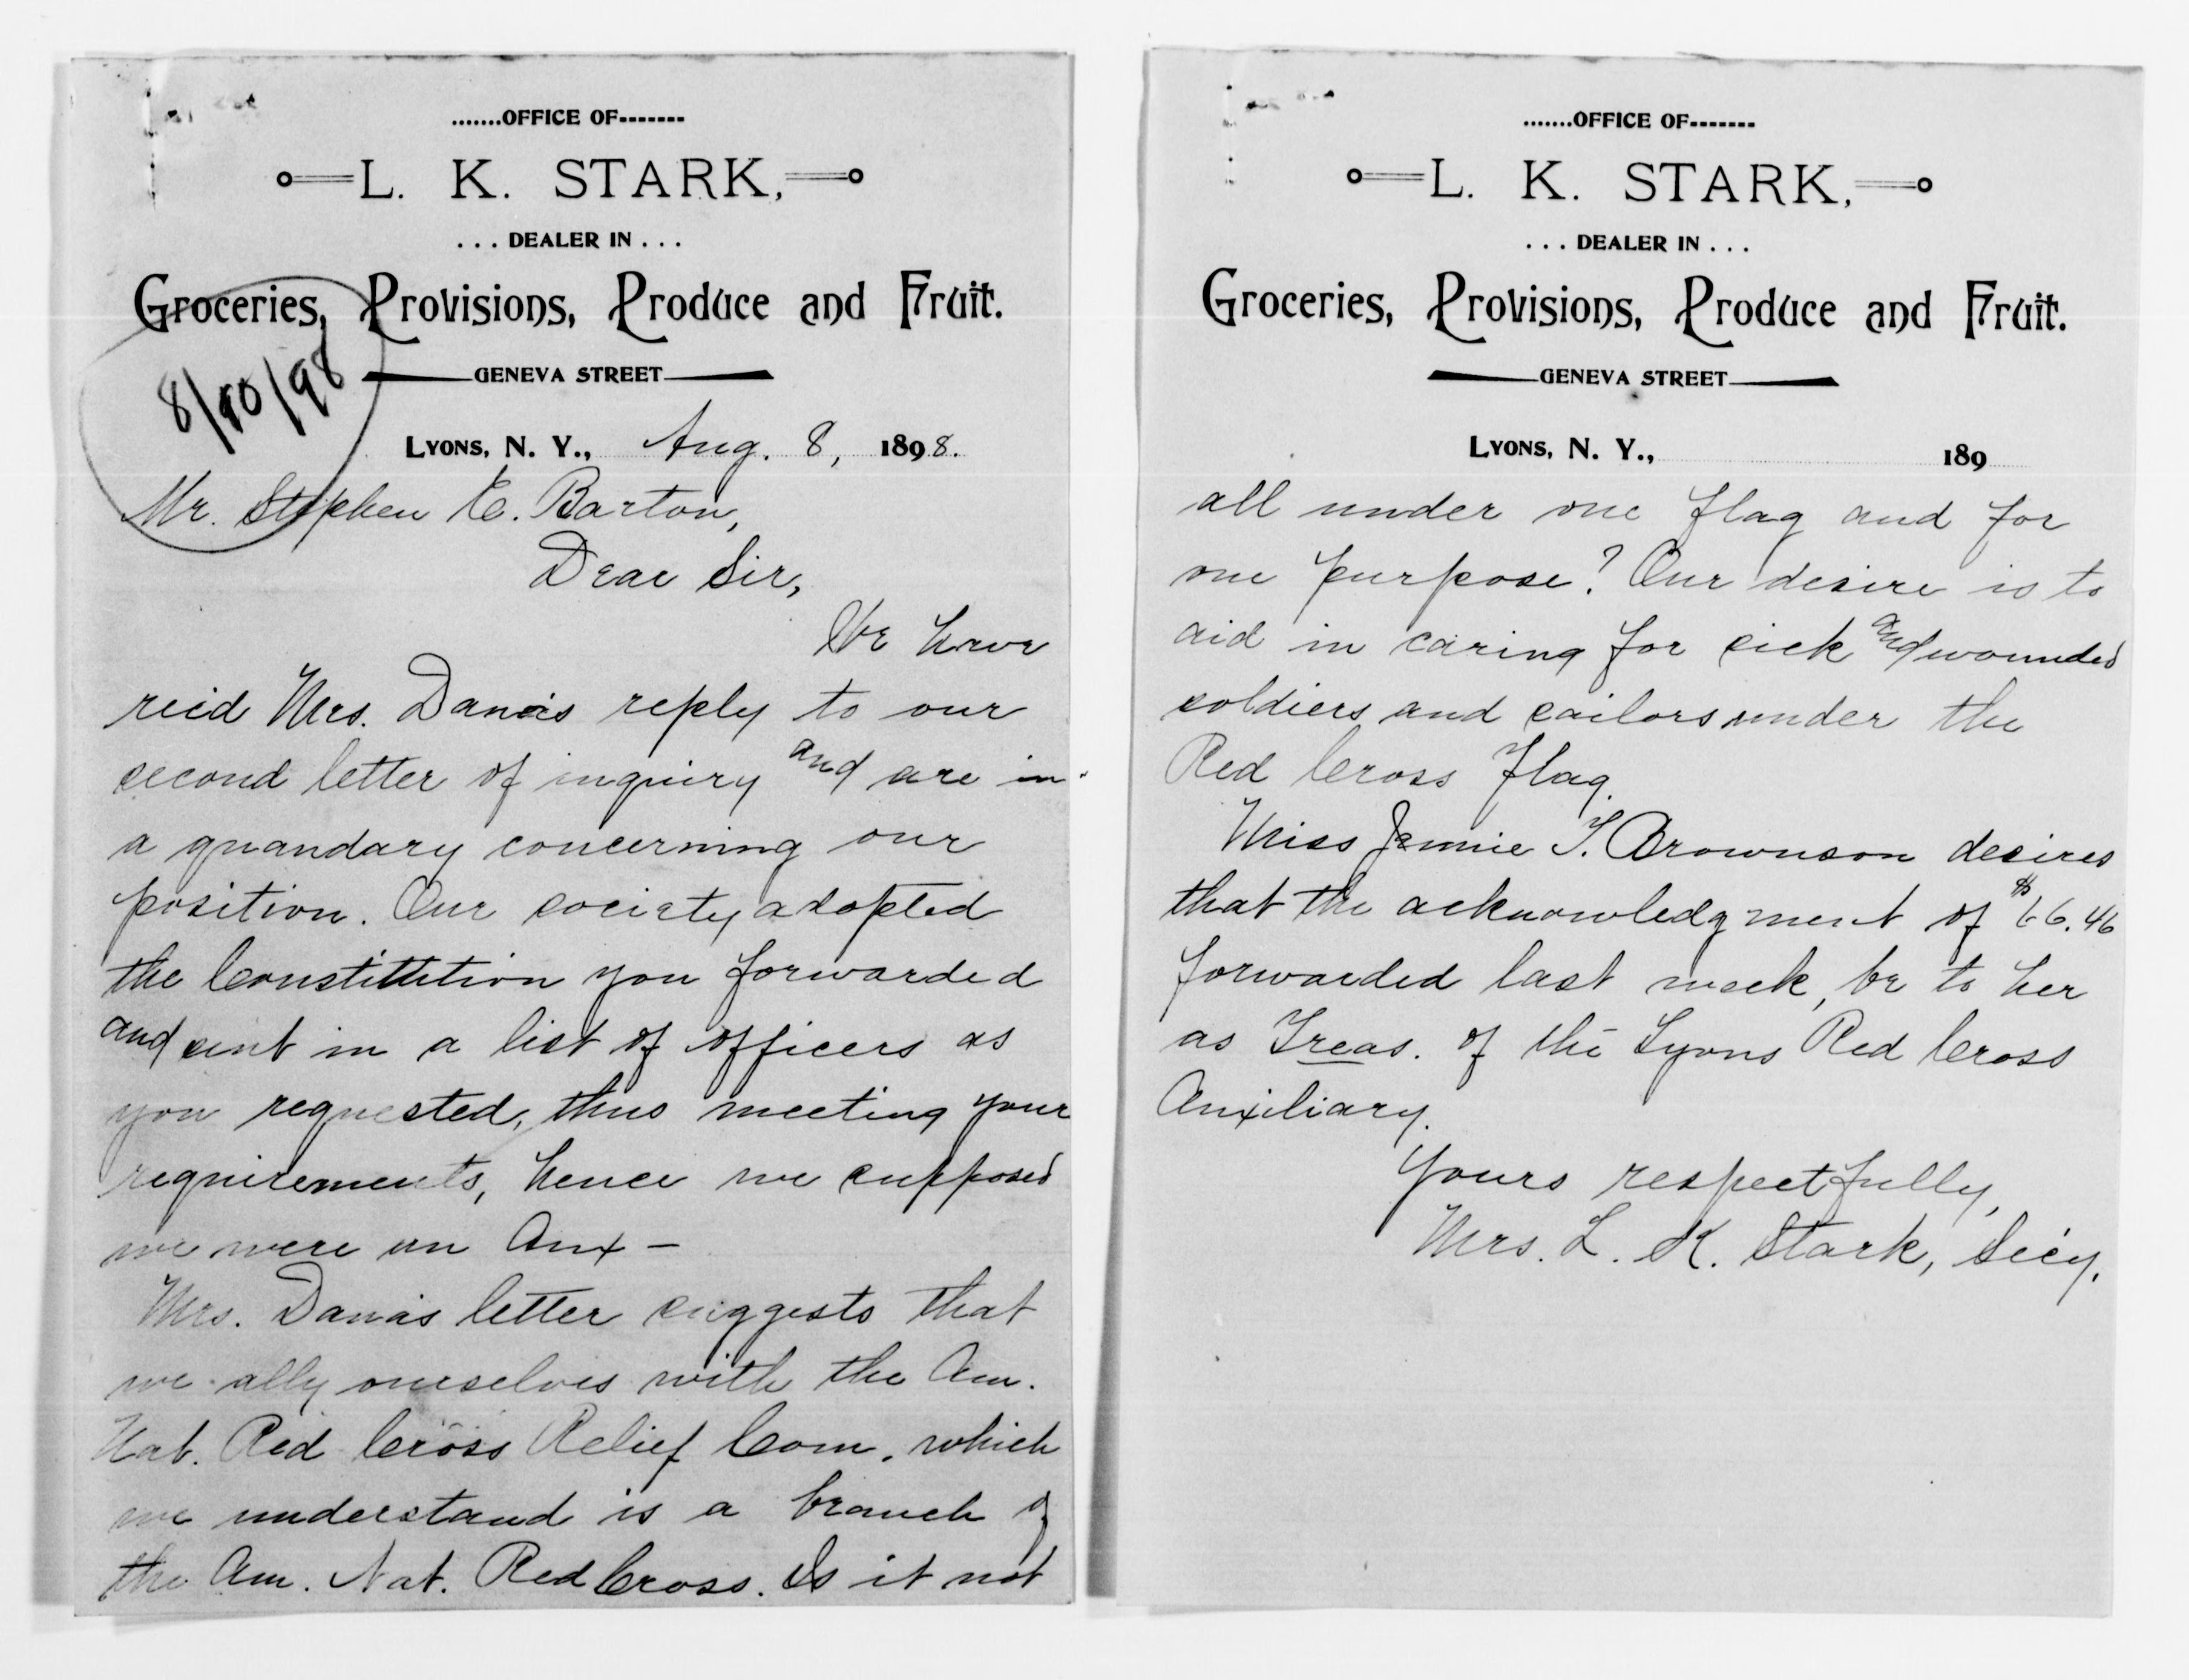 .......OFFICE OF-------
L. K. STARK,
...DEALER IN...
Groceries, Provisions, Produce and Fruit.
GENEVA STREET
8/10/98
LYONS, N. Y., Aug. 8, 1898.
Mr. Stephen E. Barton,
Dear Sir,
We have
rec'd Mrs. Dana's reply to our
second letter of inquiry and are in
a quandary concerning our
position. Our society adopted
the Constitution you forwarded
and sent in a list of officers as
you requested, thus meeting your
requirements, hence we supposed
we were an Aux –
Mrs. Dana's letter suggests that
we ally ourselves with the Am.
Nat. Red Cross Relief Com. which
we understand is a branch of
the Am. Nat. Red Cross. Is it not
.......OFFICE OF-------
L. K. STARK,
...DEALER IN...
Groceries, Provisions, Produce and Fruit.
GENEVA STREET
LYONS, N. Y., 189
all under one flag and for
one purpose? Our desire is to
aid in caring for sick and wounded
soldiers and sailors under the
Red Cross flag.
Miss Jennie T. Brownson desires
that the acknowledgment of $66.46
forwarded last week, be to her
as Treas. of the Lyons Red Cross
Auxiliary.
Yours respectfully,
Mrs. L. K. Stark, Sec'y.